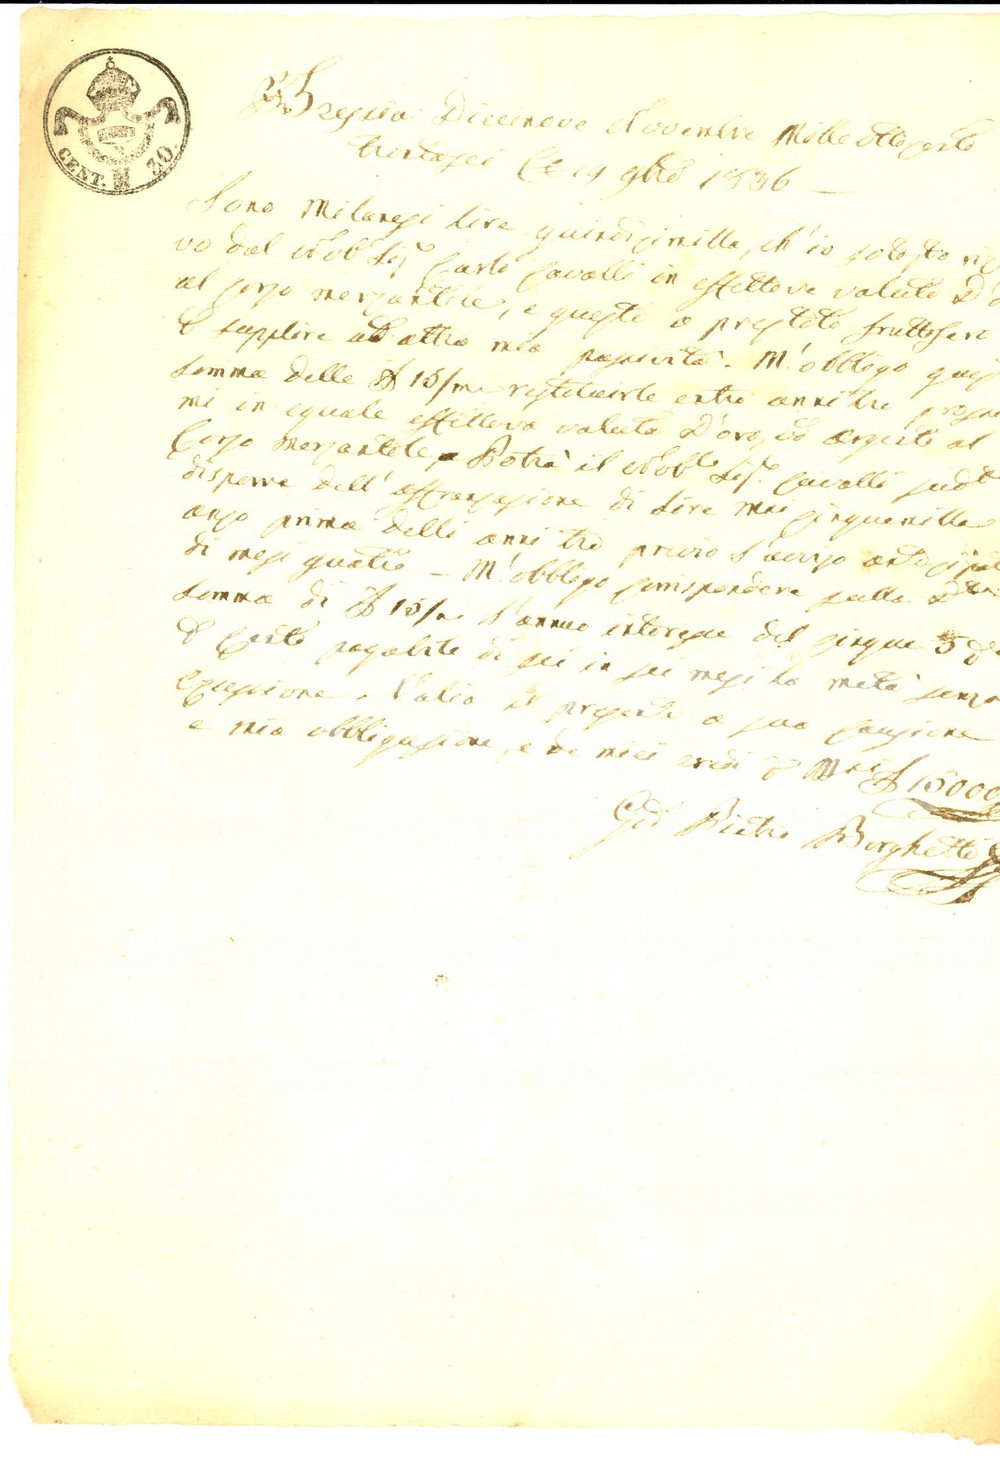 CENT. 30.
Brescia Diecinove Novembre Mille Ottocento
trentasei Le 19 9bre 1836
Sono Milanesi lire quindicimille, ch'io sotosto
vo dal Nob.e Sig.r Carlo Cavalli in effettive valute D'
al corso merzantile, e queste a prestito fruttifero
e supplire ad altra mia passività. M'obbligo
somma delle £ 15/m restituirle entro anni tre
mi in equale effettiva valuta D'oro, od argento al
Corso merzantile, Potrà il Nob.e Sig.r Cavalli sud
disporre dell' di Lire Mni cinquemille
anzo prima delli anni tre previo l'aviso
di mesi quatro – M'obbligo corispondere sulla D
somma di £ 15/m l'annuo interesse del cinque 5
Cento pagabile di sei in sei mesi la metà senza
Valio presente a sua cauzione
e mia obbligazione, e de miei eredi Mni £ 15000
Pietro Borghetti